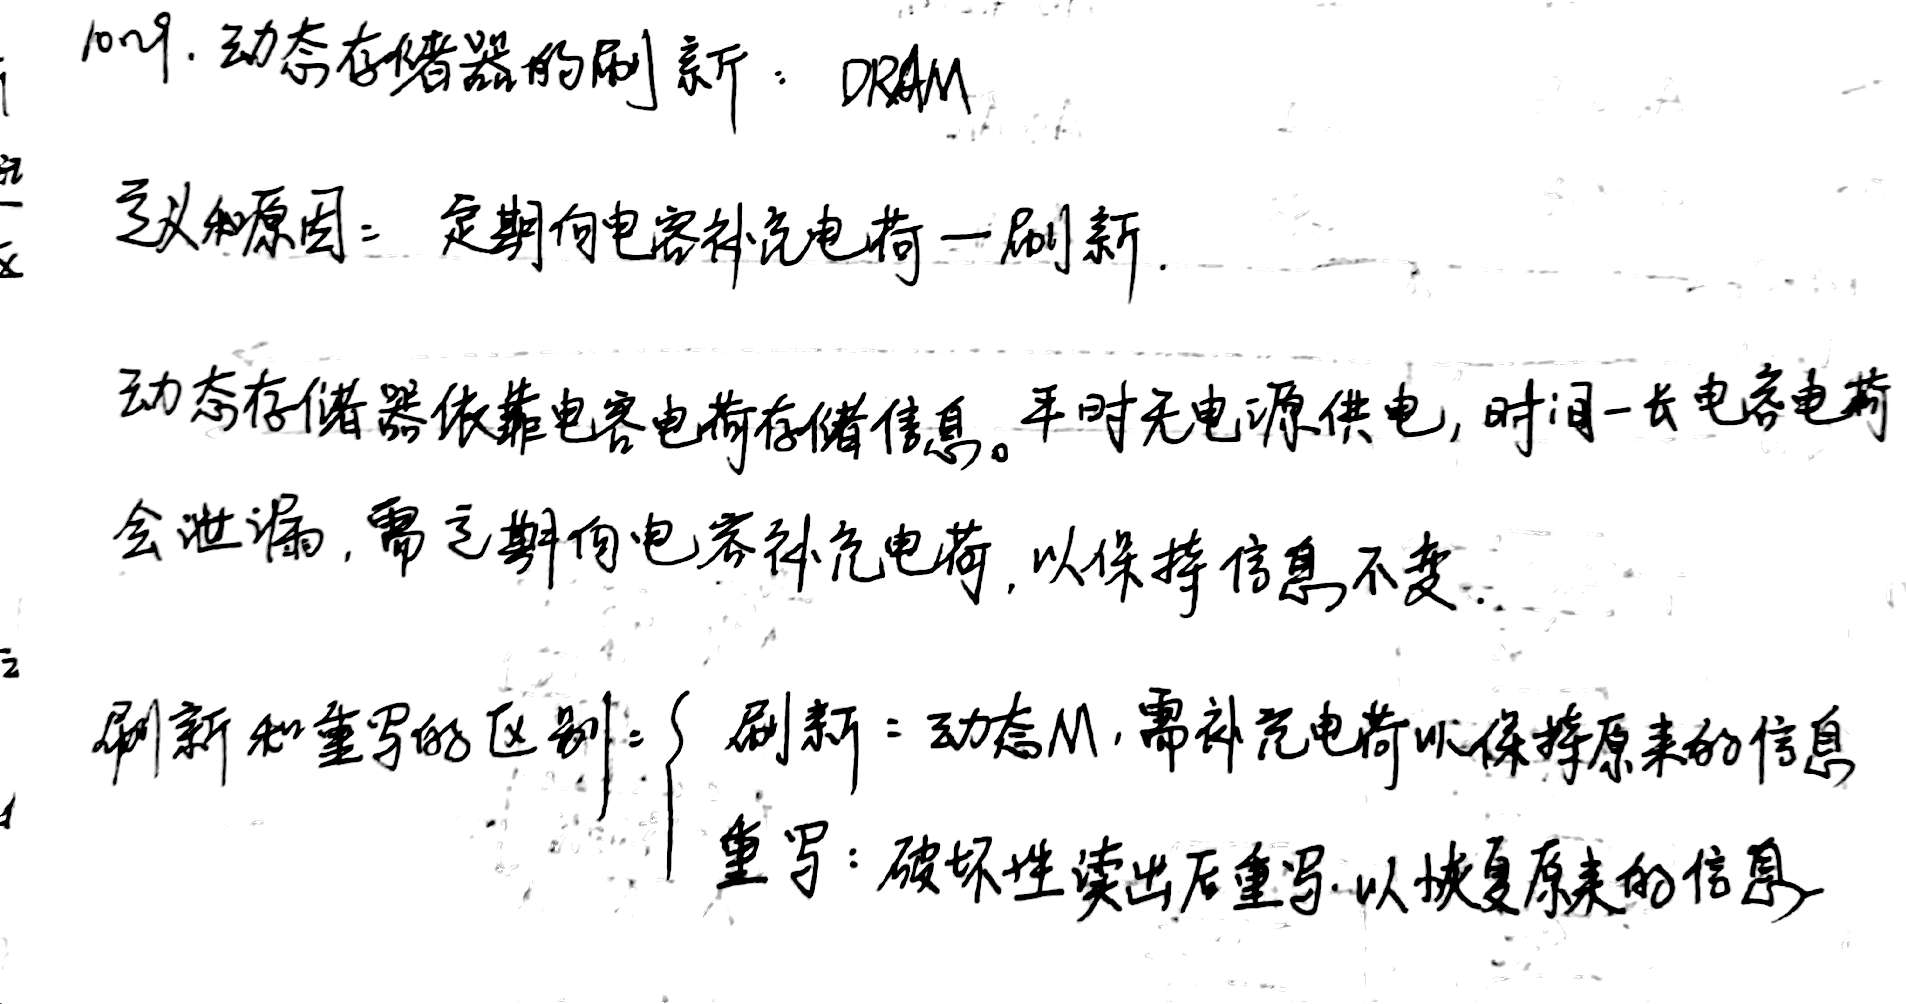 10.29. 动态存储器的刷新：DRAM
定义和原因：定期向电容补充电荷—刷新.
动态存储器依靠电容电荷存储信息。平时无电源供电,时间一长电容电荷
会泄漏,需定期向电容补充电荷,以保持信息不变.
刷新和重写的区别：{ 刷新：动态M,需补充电荷以保持原来的信息
重写：破坏性读出后重写.以恢复原来的信息